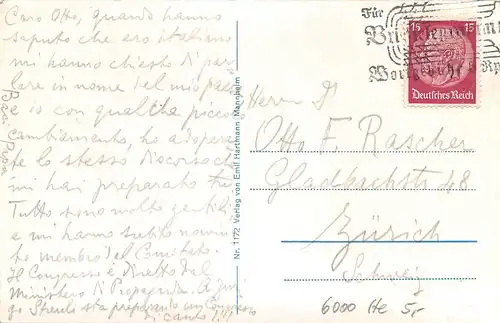 Caro Otto, quando hanno
saputo che ero italiano
mi hanno chiesto di par
lare in nome del mio paese
e io con qualche piccolo
cambiamento, ho adopera
to lo stesso discorso che
mi hai preparato tu.
Tutto sono molto gentili
e mi hanno subito nomina
to membro del Comitato.
Il Congresso è diretto dal
Ministero di Propaganda. A
go Streuli sta preparando un Congresso
di canto
Nr. 1172 Verlag von Emil Hartmann, Mannheim
Für
15 15
Deutsches Reich
Herrn D
Otto F. Rascher
Gladbachstr 48
Zürich
Schweiz
6000 Hte 5,-